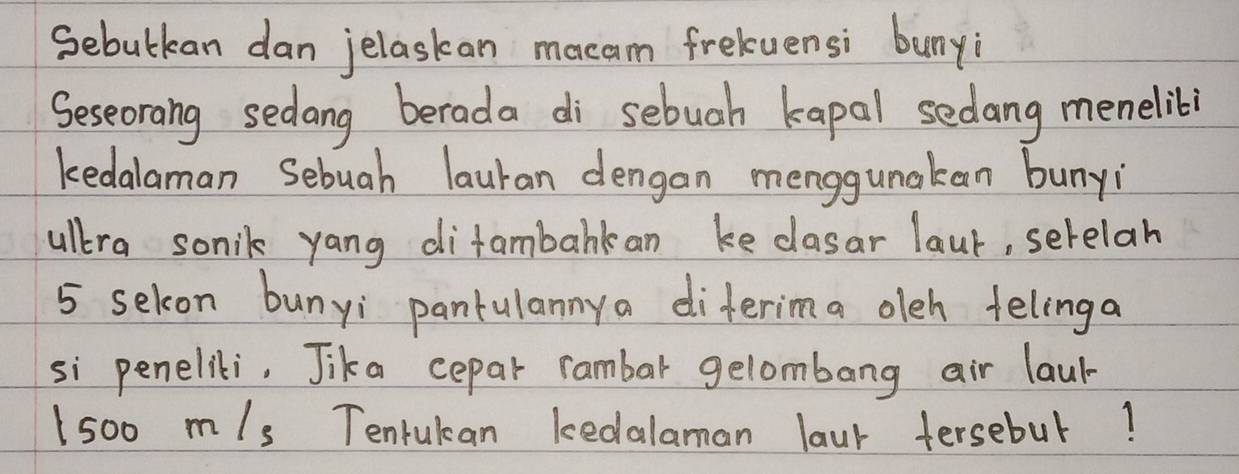 Sebutkan dan jelaskan macam frekuensi bunyi
Seseorang sedang berada di sebuah kapal sedang meneliti
kedalaman Sebuah lautan dengan menggunakan bunyi
ultra sonik yang ditambahkan ke dasar laut, setelah
5 sekon bunyi pantulannya diterima oleh telinga
si peneliti, Jika cepat rambat gelombang air laut
1500 m/s Tentukan kedalaman laut tersebut !